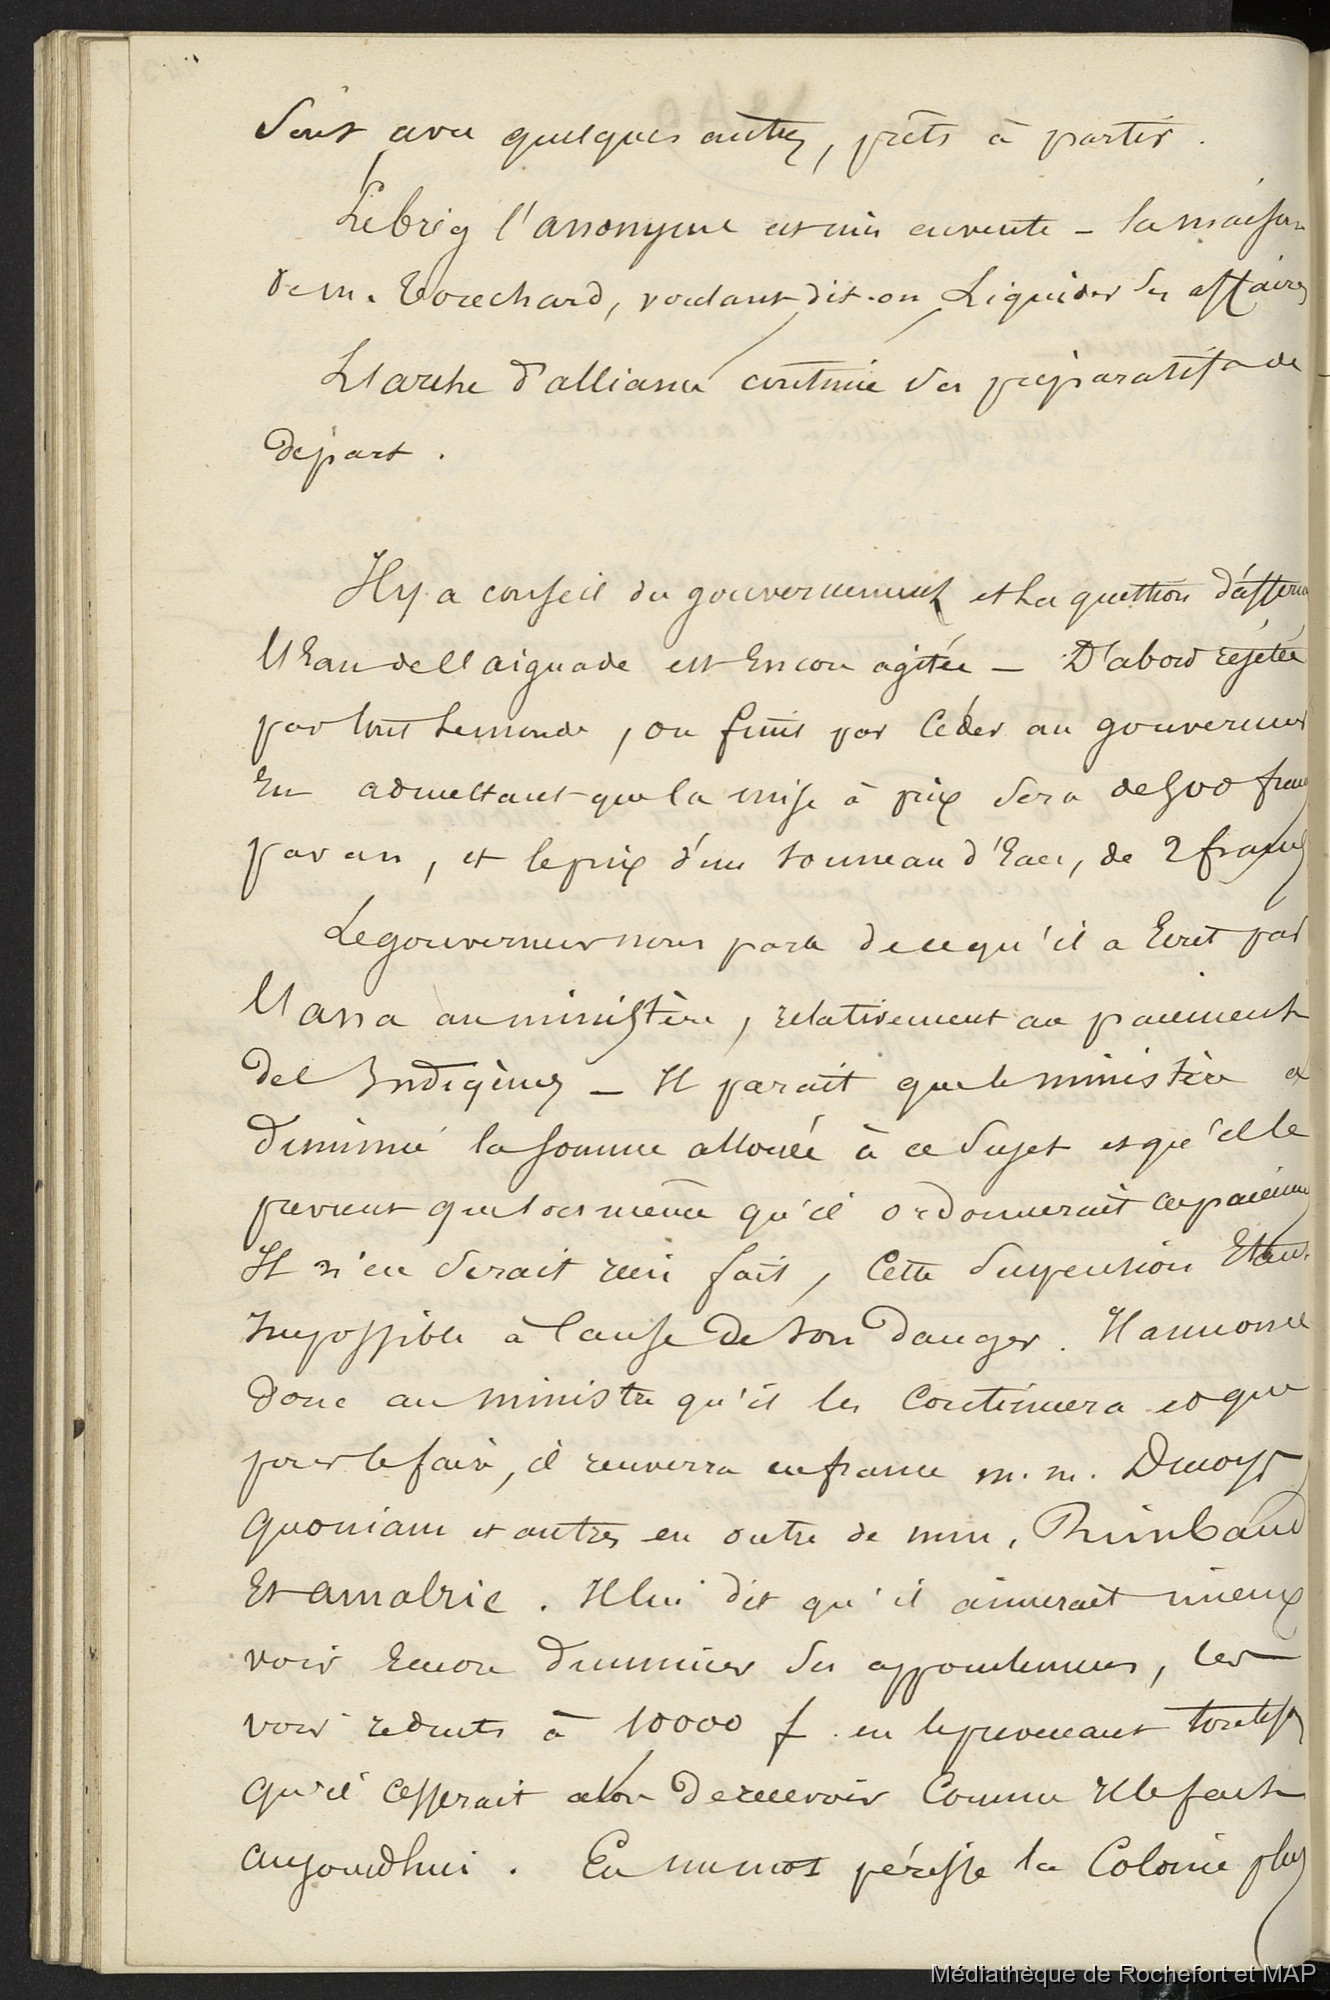 Sont avec quelques autres, prêts à partir.
Le brig l'anonyme est mis en vente - la maison
de m. Touchard, voulant dit-on Liquider ses affaires
L'arche d'alliance continue ses préparatifs de
départ.
Il y a conseil du gouvernement et La question d'affermer
l'Eau de l'aiguade est Encore agitée - D'abord rejetée
par tout Lemonde, on finit par Céder au gouverneur
En admettant que la mise à prix sera de 500 francs
par an, et le prix d'un tonneau d'Eau, de 2 francs
Le gouverneur nous parle de ce qu'il a Ecrit par
l'assa au ministère, relativement au paiement
des Indigènes - Il parait que le ministère a
Diminué la somme allouée à ce sujet et qu'il le
prévient que lors même qu'il ordonnerait ce paiement
Il n'en serait rien fait, Cette suspension Etant
Impossible à Cause de son danger. Il annonce
Donc au ministre qu'il les Continuera et que
pour le faire, il renverra en france m.m.
Quoniam et autres en outre de mm. Rimbaud
Et amalric. Il lui dit qu'il aimerait mieux
voir Encore diminuer ses appointemens, les
voir réduits à 10000 f. en le prévenant toutefois
qu'il Cesserait alors De recevoir Comme Il le fait
aujourdhui. En un mot périsse la Colonie plus
Médiathèque de Rochefort et MAP